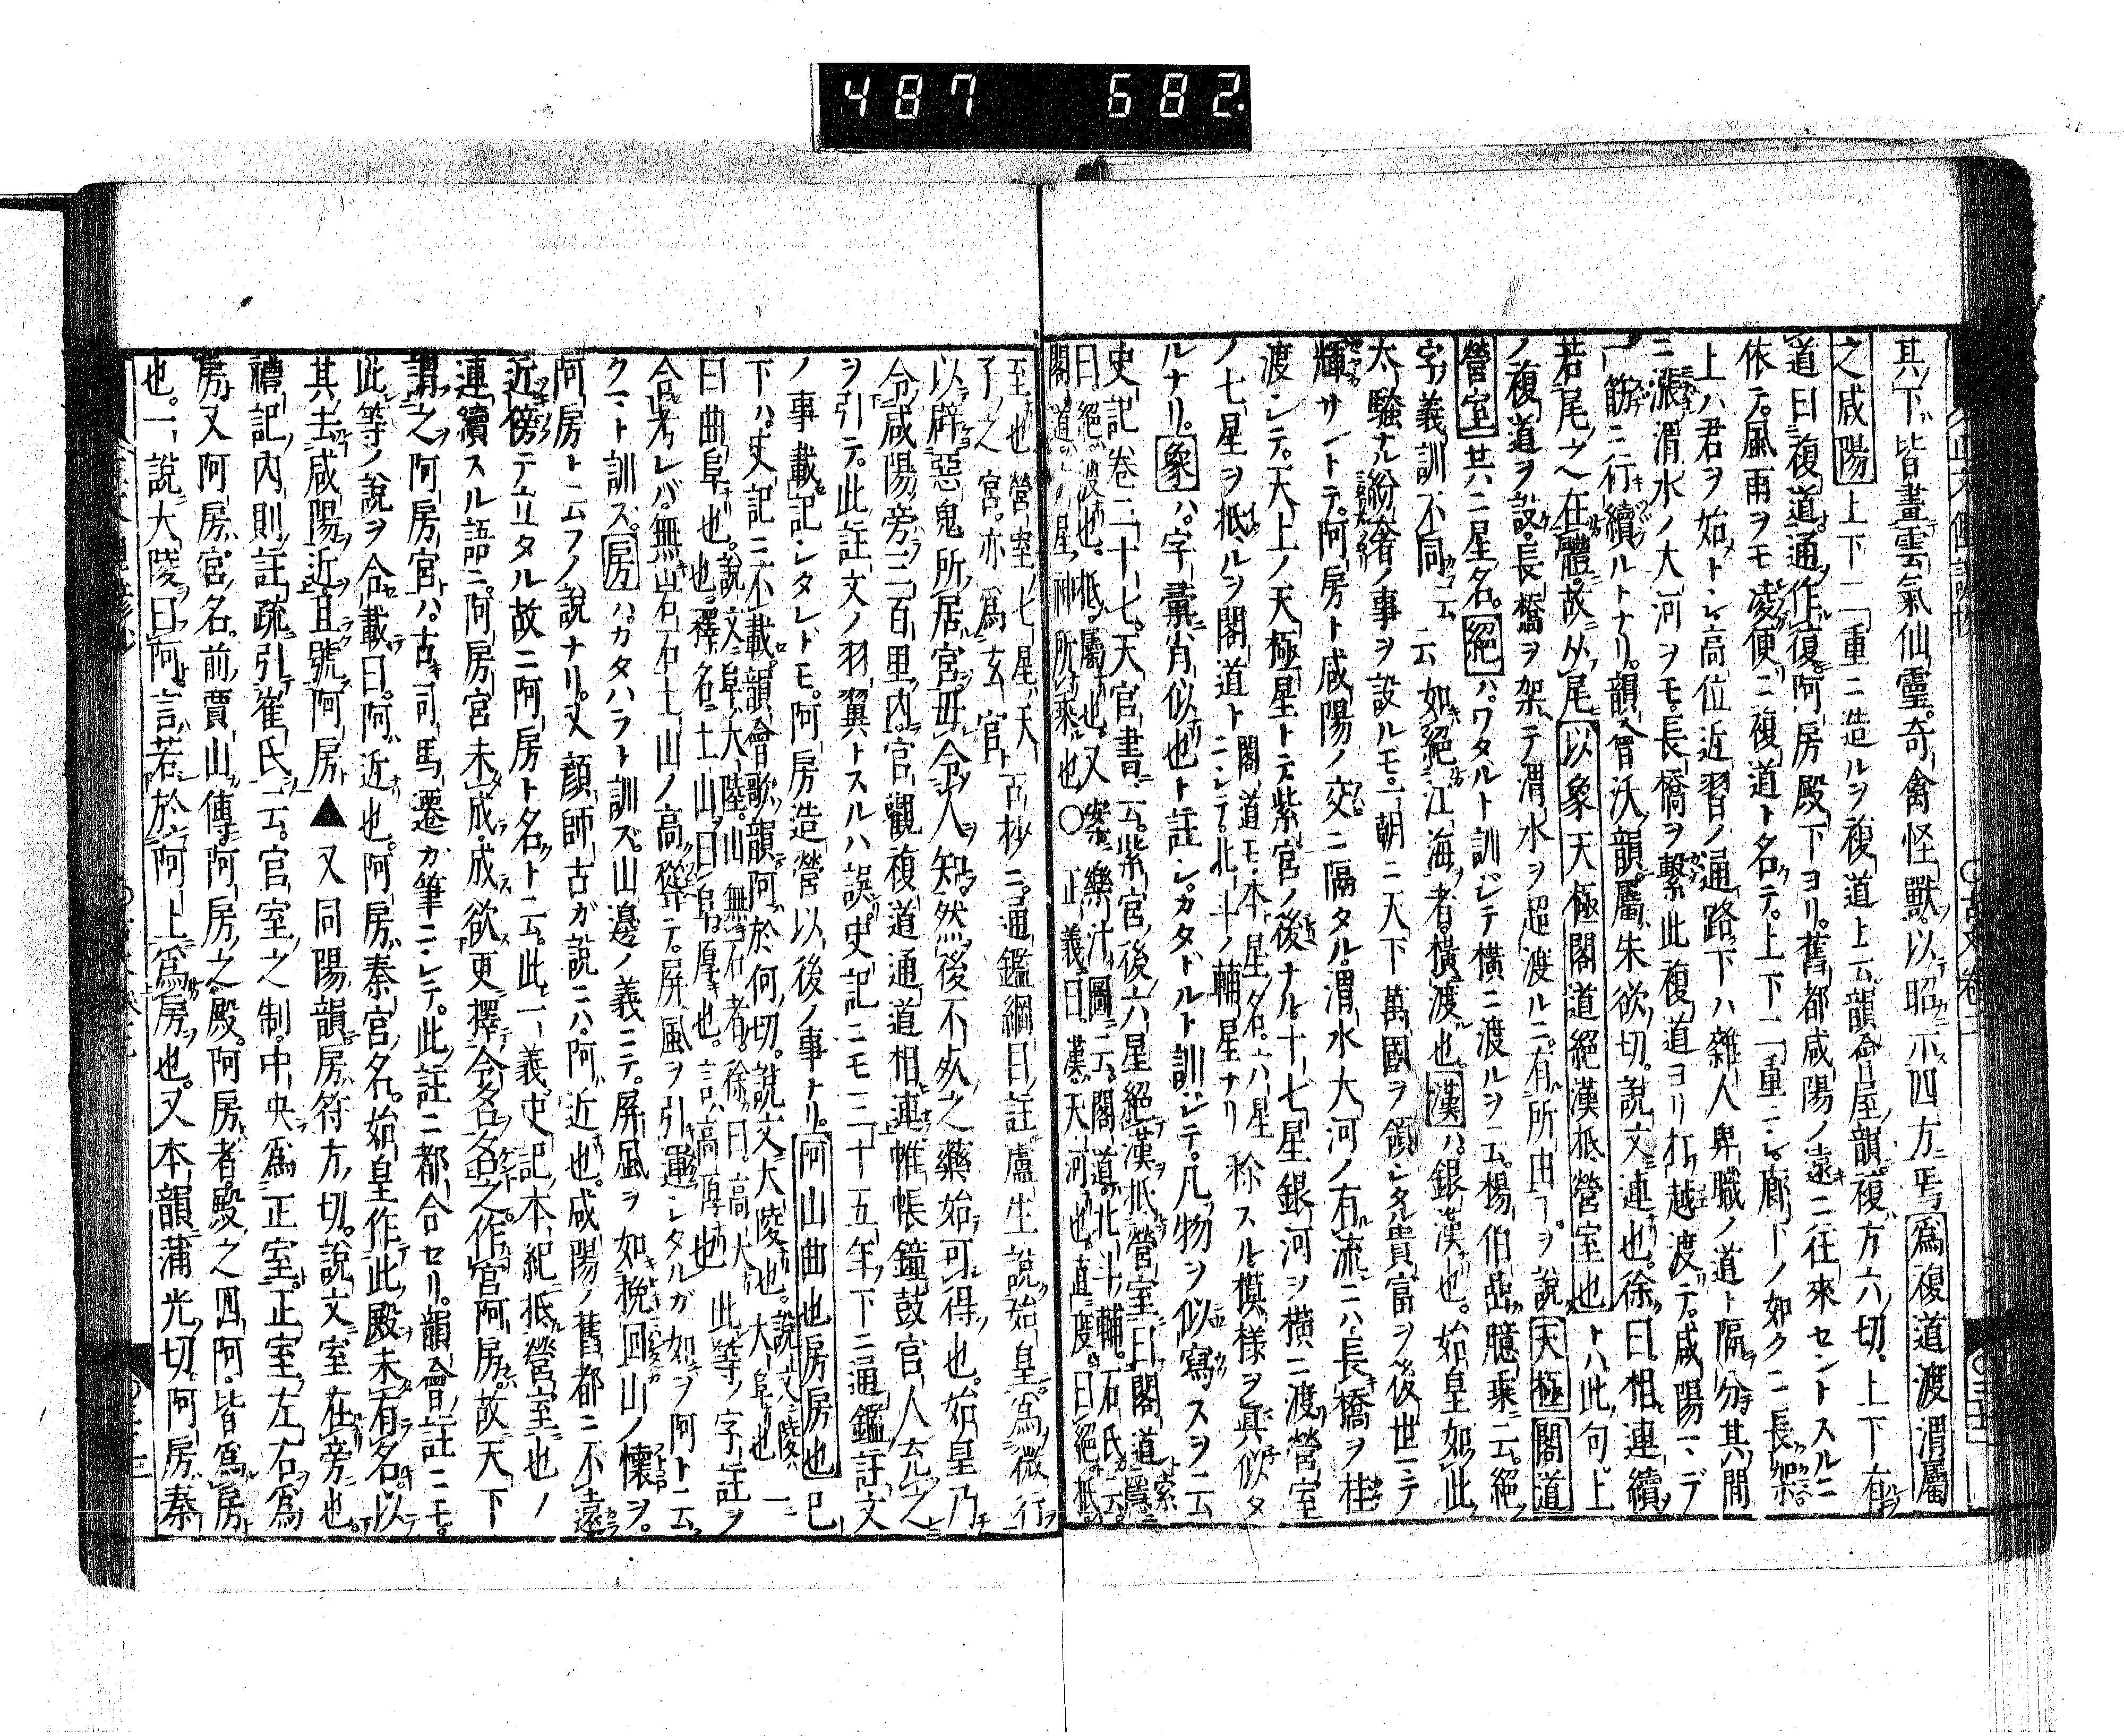 487 682
其下皆畫雲氣仙靈奇禽怪獸以昭示四方焉爲複道渡渭屬
之咸陽上下二重ニ造ルヲ複道上云韻會屋韻複方六切上下有
道曰複道通作復阿房殿下ヨリ舊都咸陽ノ遠ニ往來セントスルニ
依テ風雨ヲモ凌便ニ複道ト名テ上下二重ニシ廊下ノ如クニ長架
上ハ君ヲ始トシ高位近習ノ通路下ハ雜人卑職ノ道ト隔分其間
ニ漲渭水ノ大河ヲモ長橋ヲ繫此複道ヨリ打越渡テ咸陽マデ
一筋ニ行續ルトナリ韻會沃韻屬朱欲切說文連也徐曰相連續
若尾之在體故从尾以象天極閣道絕漢抵營室也トハ此句上
ノ複道ヲ設長橋ヲ架テ渭水ヲ超渡ルニ有所由ヿヲ說天極閣道
營室共ニ星名絕ハワタルト訓ジテ橫ニ渡ルヲ云楊伯嵒臆乘云絕
字義訓不同云云如絕江海者橫渡也漢ハ銀漢也始皇如此
太騷ナル紛奢ノ事ヲ設ルモ一朝ニ天下萬國ヲ領シタル貴富ヲ後世ニテ
輝サントテ阿房ト咸陽ノ交ニ隔タル渭水大河ノ有流ニハ長橋ヲ桂
渡シテ天上ノ天極星トテ紫宮ノ後ナル十七星銀河ヲ橫ニ渡營室
ノ七星ヲ抵ルヲ閣道トニシテ北斗ノ輔星ナリ閣道モ本星名六星称スル模様ヲ真似タ
ルナリ象ハ字彙肖似也ト註シカタドルト訓ジテ凡物ヲ似寫スヲ云
史記卷二十七天官書云紫宮後六星絕漢抵營室曰閣道索隱
曰絕渡也抵屬也又樂汁圖云閣道北斗輔石氏云
閣道六星神所乘也〇正義曰漢天河也直度曰絕抵
至也營室七星天子之宮亦爲玄宮古抄ニ通鑑綱目註盧生說始皇爲微行
以辟惡鬼所居宮毋令人知然後不死之藥始可得也始皇乃
令咸陽旁二百里內官觀複道通道相連帷帳鐘鼓官人充之
ヲ引テ此註文ノ羽翼トスルハ誤史記ニモ三十五年下ニ通鑑註文
ノ事載記シタレドモ阿房造營以後ノ事ナリ阿山曲也房房也已
下ハ史記ニ不載韻會歌韻阿於何切說文大陵也大阜也
曰曲阜也說文阜大陸山無石者徐曰高大也釋名土山曰阜厚也言高厚也此等ノ字註ヲ
合考レバ無岩石土山ノ高聳テ屏風ヲ引運シタルガ如ヲ阿ト云
クマト訓ズ房ハカタハラト訓ズ山邊ノ義ニテ屏風ヲ如挽回山ノ懷ヲ
阿房ト云フノ說ナリ又顏師古ガ說ニハ阿近也咸陽ノ舊都ニ不遠
近傍テ立タル故ニ阿房ト名クト云此一義史記本紀抵營室也ノ
連續スル語ニ阿房宮未成成欲更擇令名名之作宮阿房故天下
謂之阿房宮ハ古司馬遷ガ筆ニシテ此註ニ都合セリ韻會註ニモ
此等ノ說ヲ合載曰阿近也阿房秦宮名始皇作此殿未有名以
其去咸陽近且號阿房▲又同陽韻房符方切說文室在旁也
禮記內則註疏引崔氏云宮室之制中央爲正室正室左右爲
房又阿房宮名前賈山傳阿房之殿阿房者殿之四阿皆爲房
也一說大陵曰阿言若於阿上爲房也又本韻蒲光切阿房秦